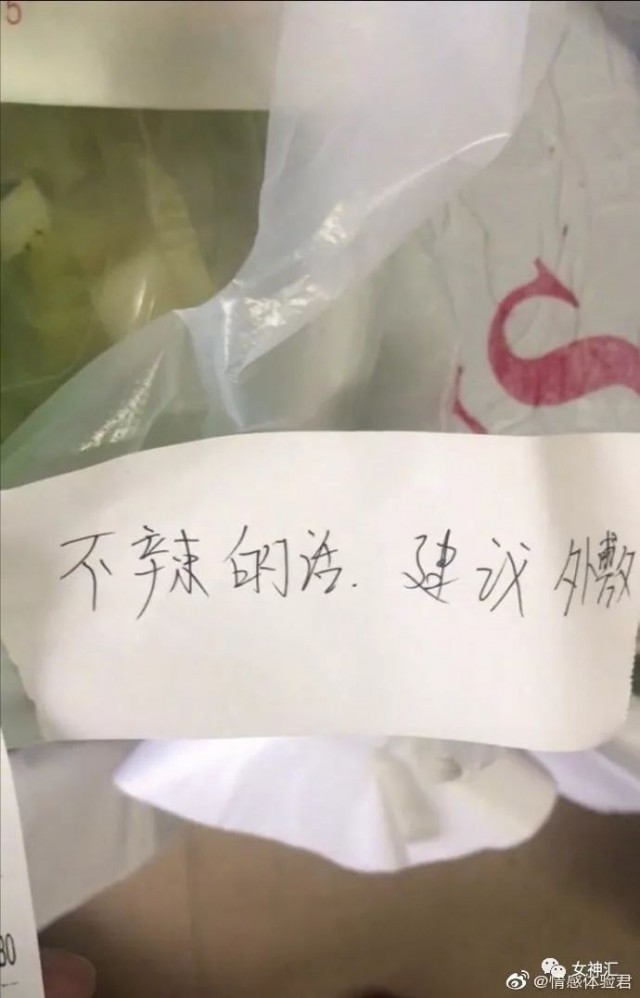 5
S
不辣的话.建议外敷
30
女神汇
@情感体验君